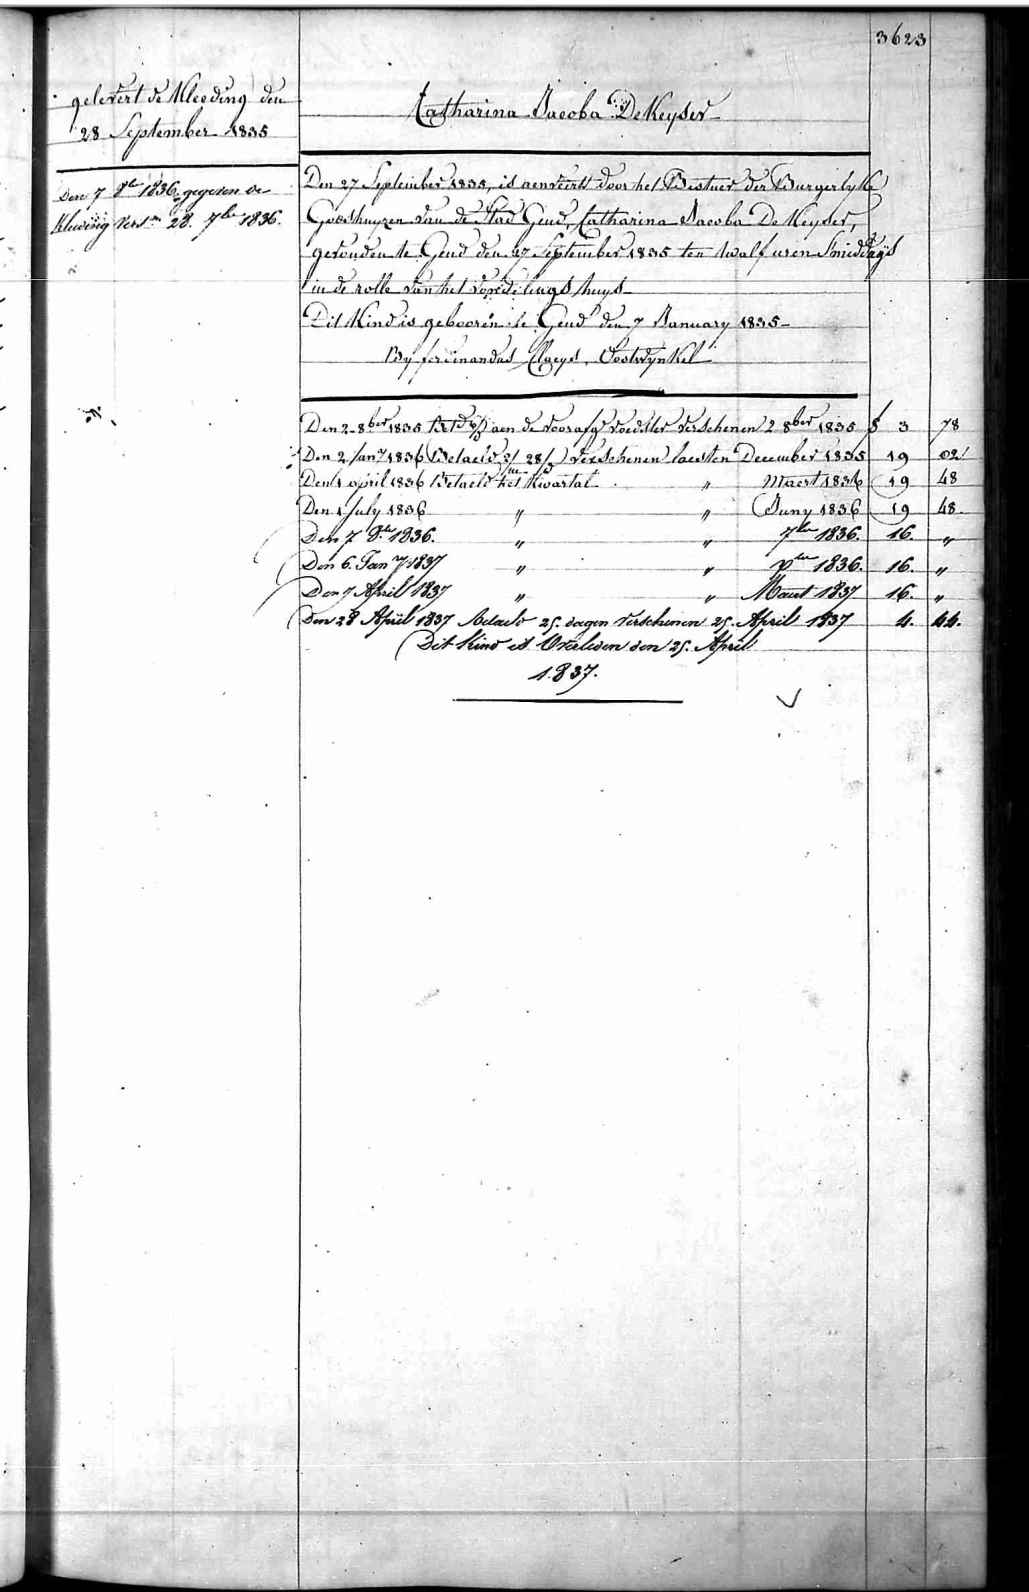 3623
gelevert de Kleeding den
28 September 1835
Den 7 8re 1836 gegeven de
Kleeding Versn 28. 7bre 1836.
Catharina Jacoba DeKeyser
Den 27 September 1835, is aenveert door het Bestuer der Burgerlyke
Godshuyzen van de Stad Gend, Catharina Jacoba De Keyser,
gevonden te Gend den 27 September 1835 ten twalf uren Smiddags
in de rolle van het vondelings huys
Dit Kind is gebooren te Gend den 7 January 1835
By ferdinandus Claeys, Oostwynkel
Den 2 8ber 1835 aen de voorafg voedster verschenen 2 8ber 1835 3 78
Den 2 Jany 1836 Betaeld verschenen laesten December 1835 19 02
Den 1 april 1836 Betaeld het Kwartal " Maert 1836 19 48
Den 1 July 1836 " " Juny 1836 19 48
Den 7 8re 1836. " " 7bre 1836. 16. "
Den 6. Jany 1837 " " xbre 1836. 16. "
Den 7 April 1837 " " Maert 1837 16. "
Den 28 April 1837 betaeld 25. dagen verschenen 25. April 1837 4. 44.
Dit kind is Overleden den 25. April
1837.